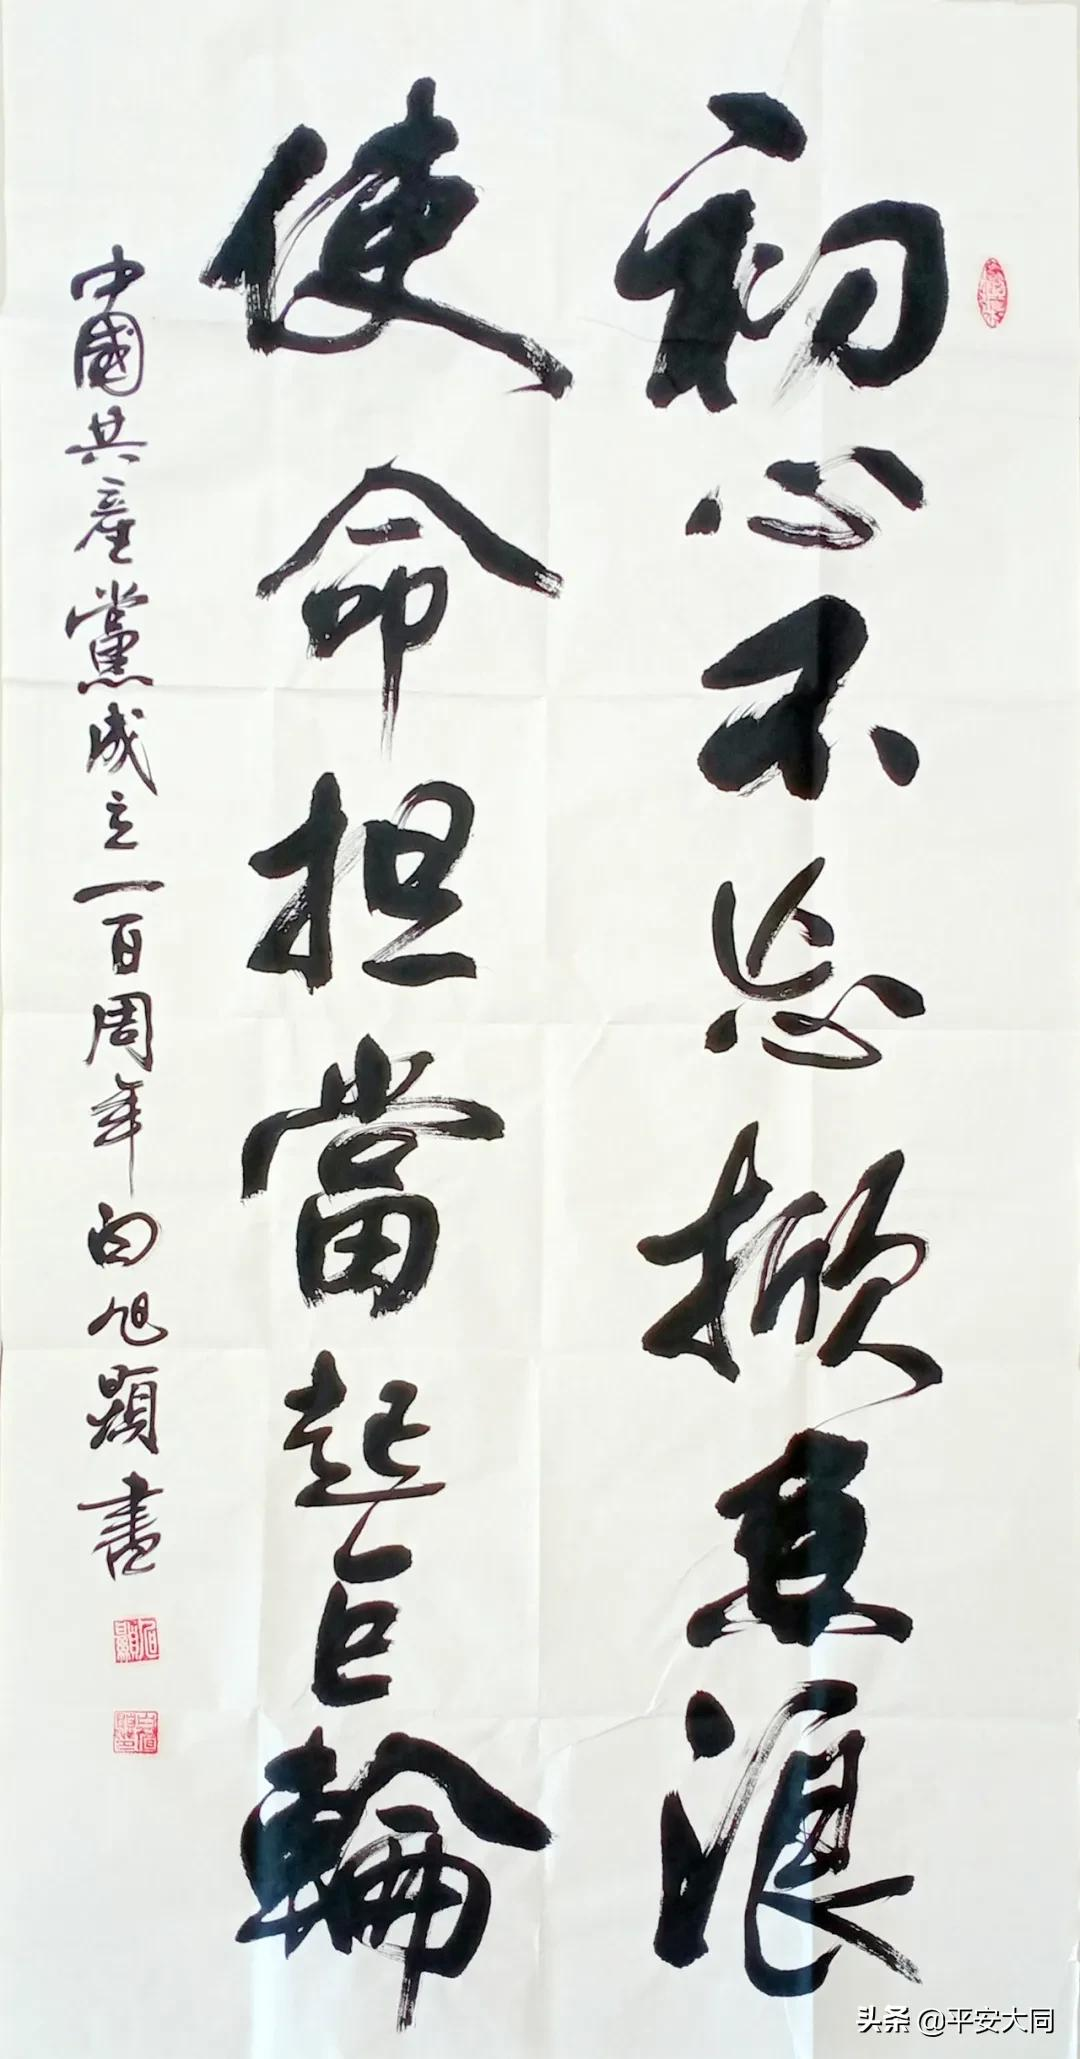 初心不忘掀巨浪
使命担當起巨輪
中國共產黨成立一百周年白旭顯書
头条 @平安大同